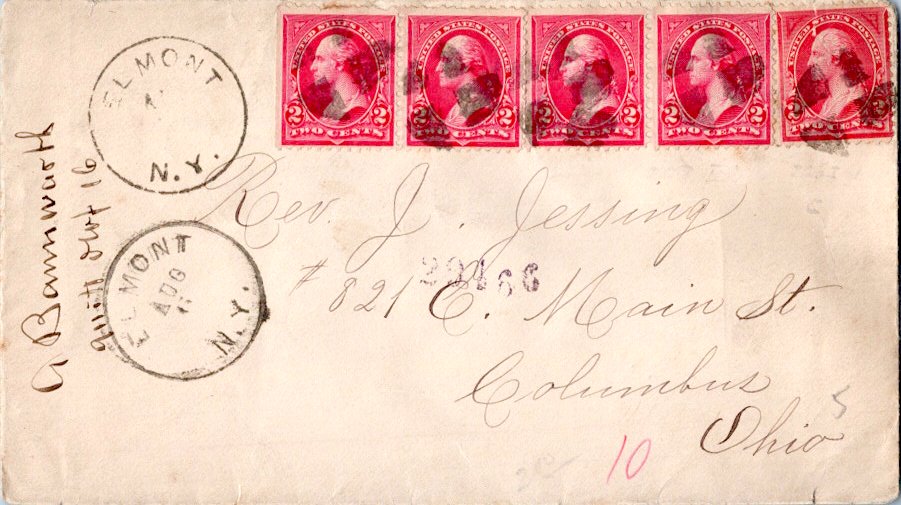 UNITED STATES POSTAGE
2 2
TWO CENTS
UNITED STATES POSTAGE
2 2
TWO CENTS
UNITED STATES POSTAGE
2 2
TWO CENTS
UNITED STATES POSTAGE
2 2
TWO CENTS
UNITED STATES POSTAGE
2 2
TWO CENTS
ELMONT
N.Y.
ELMONT
AUG
N.Y.
A
16
Rev. J. Jessing
# 821 E. Main St.
Columbus
Ohio
10
5